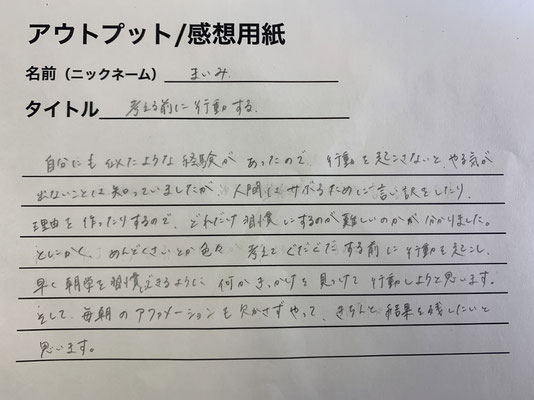 アウトプット/感想用紙
名前（ニックネーム） まいみ
タイトル 考える前に行動する.
自分にも似たような経験があったので 行動を起こさないと、やる気が
出ないことは知っていましたが、人間はサボるために言い訳をしたり、
理由を作ったりするので、どれだけ習慣にするのが難しいのかが分かりました。
とにかく、めんどくさいとか色々 考えてぐだぐだする前に行動を起こし、
早く朝学を習慣にできるように 何かきっかけを見つけて行動しようと思います。
そして、毎朝のアファメーションも欠かさずやって、きちんと結果を残したいと
思います。